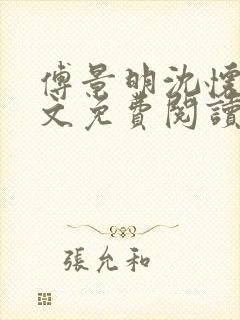 傅景明沈懷
文免費閱讀
張允和